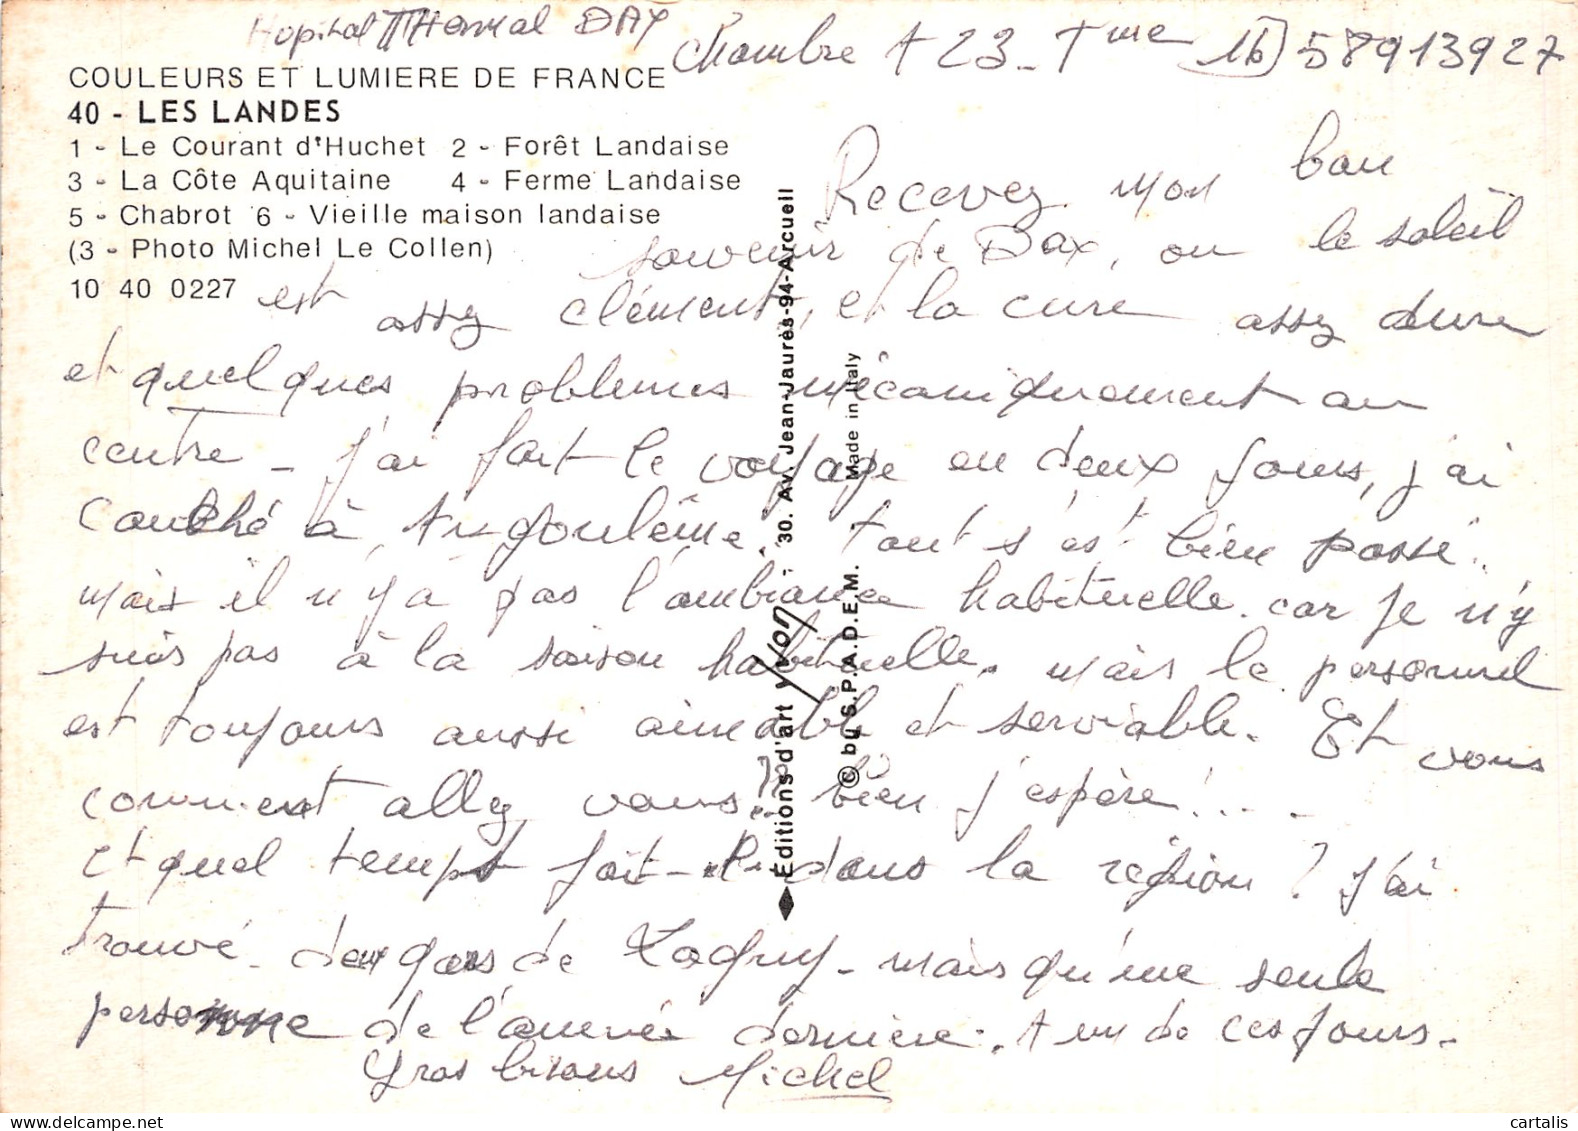 Hopital THermal DAX
Chambre A 23 - Tme (16) 58913927
COULEURS ET LUMIERE DE FRANCE
40 - LES LANDES
1 - Le Courant d'Huchet 2 - Forêt Landaise
3 - La Côte Aquitaine 4 - Ferme Landaise
5 - Chabrot 6 - Vieille maison landaise
(3 - Photo Michel Le Collen)
10 40 0227
Recevez mon bon
souvenir de Dax, ou le soleil
est assez clément, et la cure assez dure
et quelques problemes mécaniquement au
centre - j'ai fait le voyage en deux jours, j'ai
couché à Angoulême. tout s'est bien passé.
mais il n'y a pas l'ambiance habituelle. car je n'y
suis pas à la saison habituelle. mais le personnel
est toujours aussi aimable et serviable. Et vous
comment allez vous? bien j'espère!...
et quel temps fait-il dans la région? j'ai
trouvé deux gars de Lagny - mais qu'une seule
personne de l'année dernière. A un de ces jours.
Gros bisous Michel
Éditions d'art yvon - 30. Av. Jean-Jaurès-94-Arcueil
© by S.P.A.D.E.M. Made in Italy
cartalis